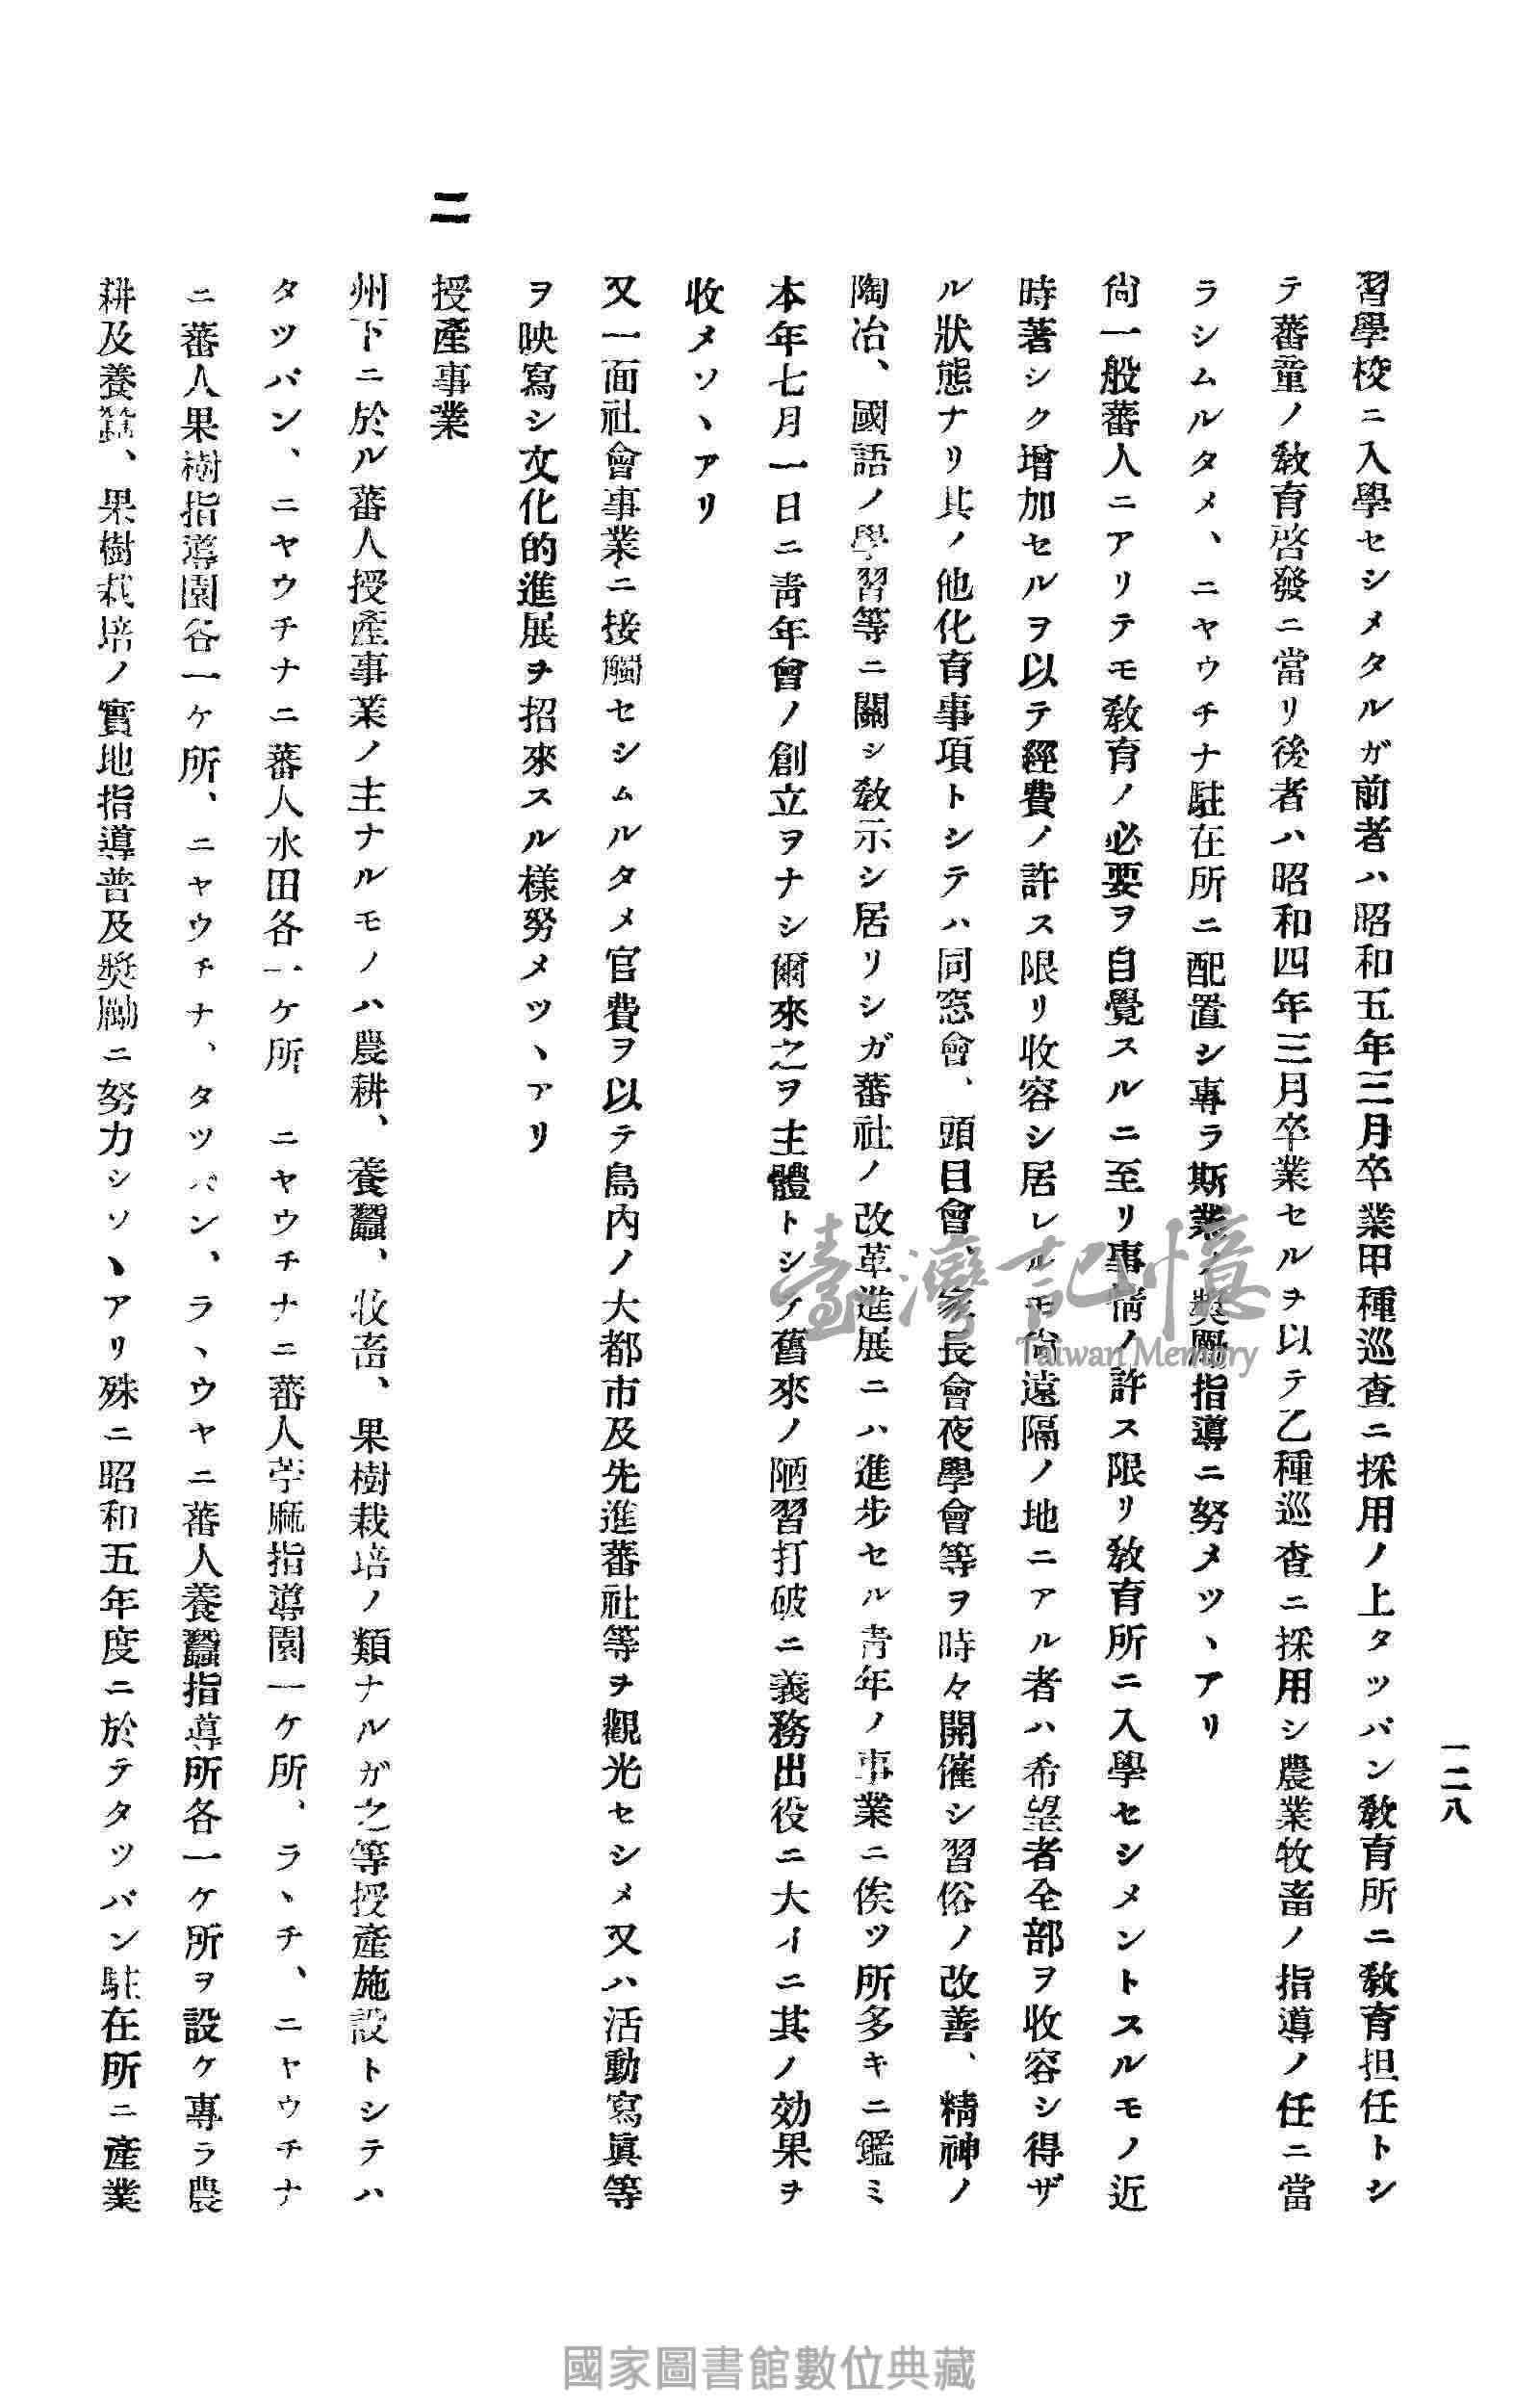 一二八
習學校ニ入學セシメタルガ前者ハ昭和五年三月卒業甲種巡査ニ採用ノ上タツバン敎育所ニ敎育担任トシ
テ蕃童ノ敎育啓發ニ當リ後者ハ昭和四年三月卒業セルヲ以テ乙種巡査ニ採用シ農業牧畜ノ指導ノ任ニ當
ラシムルタメ、ニヤウチナ駐在所ニ配置シ專ラ斯業ノ奬勵指導ニ努メツヽアリ
尙一般蕃人ニアリテモ敎育ノ必要ヲ自覺スルニ至リ事情ノ許ス限リ敎育所ニ入學セシメントスルモノ近
時著シク增加セルヲ以テ經費ノ許ス限リ收容シ居レルモ尙遠隔ノ地ニアル者ハ希望者全部ヲ收容シ得ザ
ル狀態ナリ其ノ他化育事項トシテハ同窓會、頭目會、家長會夜學會等ヲ時々開催シ習俗ノ改善、精神ノ
陶冶、國語ノ學習等ニ關シ敎示シ居リシガ蕃社ノ改革進展ニハ進步セル靑年ノ事業ニ俟ツ所多キニ鑑ミ
本年七月一日ニ靑年會ノ創立ヲナシ爾來之ヲ主體トシテ舊來ノ陋習打破ニ義務出役ニ大イニ其ノ効果ヲ
收メソヽアリ
又一面社會事業ニ接觸セシムルタメ官費ヲ以テ島内ノ大都市及先進蕃社等ヲ觀光セシメ又ハ活動寫眞等
ヲ映寫シ文化的進展ヲ招來スル樣努メツヽアリ
二 授產事業
州下ニ於ル蕃人授產事業ノ主ナルモノハ農耕、養蠶、牧畜、果樹栽培ノ類ナルガ之等授產施設トシテハ
タツバン、ニヤウチナニ蕃人水田各一ケ所 ニヤウチナニ蕃人苧麻指導園一ケ所、ラヽチ、ニヤウチナ
ニ蕃人果樹指導園各一ケ所、ニヤウチナ、タツバン、ラヽウヤニ蕃人養蠶指導所各一ケ所ヲ設ケ專ラ農
耕及養蠶、果樹栽培ノ實地指導普及奬勵ニ努力シソヽアリ殊ニ昭和五年度ニ於テタツバン駐在所ニ產業
臺灣記憶
Taiwan Memory
國家圖書館數位典藏